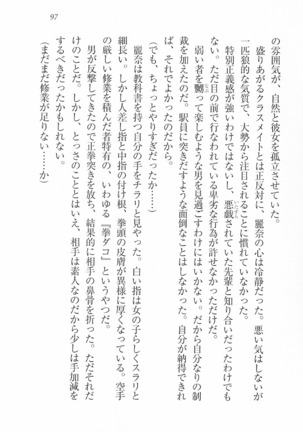 97
の雰囲気が、自然と彼女を孤立させていた。
盛りあがるクラスメイトとは正反対に、麗奈の心は冷静だった。悪い気はしないが
一匹狼的な気質で、大勢から注目されることに慣れていなかった。
特別正義感が強いわけではないし、悪戯されていた先輩と知り合いだったわけでも
ない。ただ目の前で行なわれている卑劣な行為が許せなかっただけだ。
弱い者を嬲って楽しむような男を見過ごすわけにはいかない。だから自分なりの制
裁を加えたのだ。駅員に突きだすような面倒なことはしなかった。自分が納得できれ
ば、それでよかったのだから。
（でも、ちょっとやりすぎだったか……）
麗奈は教科書を持つ自分の手をチラリと見やった。白い指は女の子らしくスラリと
細長い。しかし人差し指と中指の付け根、拳頭の皮膚が異様に厚くなっている。空手
の厳しい修業を積んだ者特有の、いわゆる『拳ダコ』というやつだ。
男が反撃してきたので正拳突きを放ち、結果的に相手の鼻骨を折った。ただそれだ
けのことだ。しかし、とっさのこととはいえ、相手は素人なのだから少しは手加減を
するべきだったかもしれない。
（まだまだ修業が足りない……か）